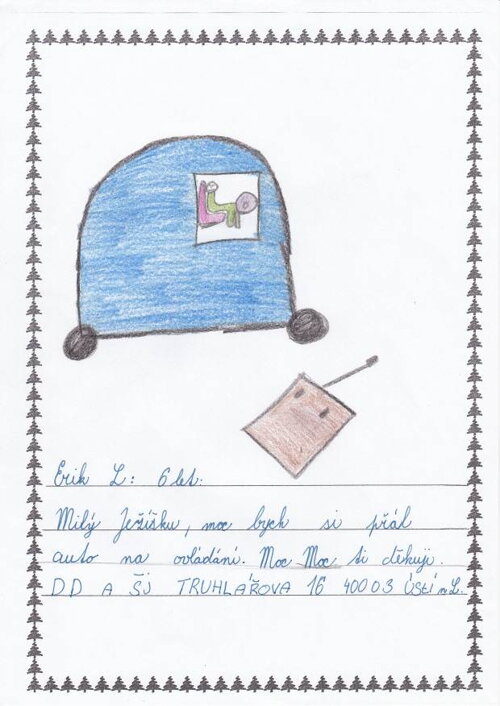 Erik L: 6 let.
Milý Ježíšku, moc bych si přál
auto na ovládání. Moc Moc ti děkuji.
DD A ŠJ TRUHLÁŘOVA 16 40003 ÚStí n.L.